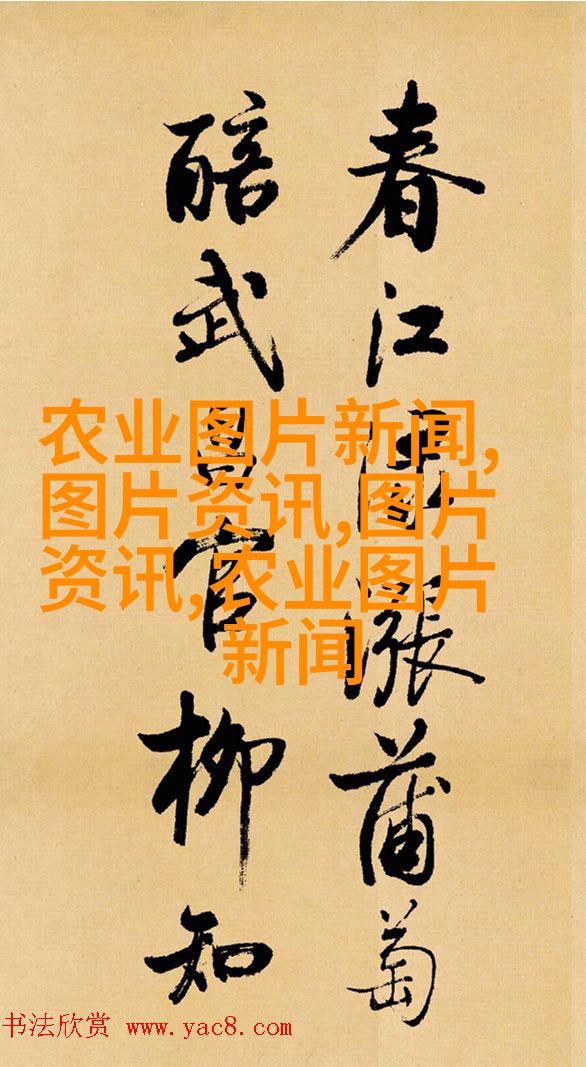 春江漲蒲萄
醅武昌官柳知
农业图片新闻,
图片资讯,图片
资讯,农业图片
新闻
书法欣赏 www.yac8.com